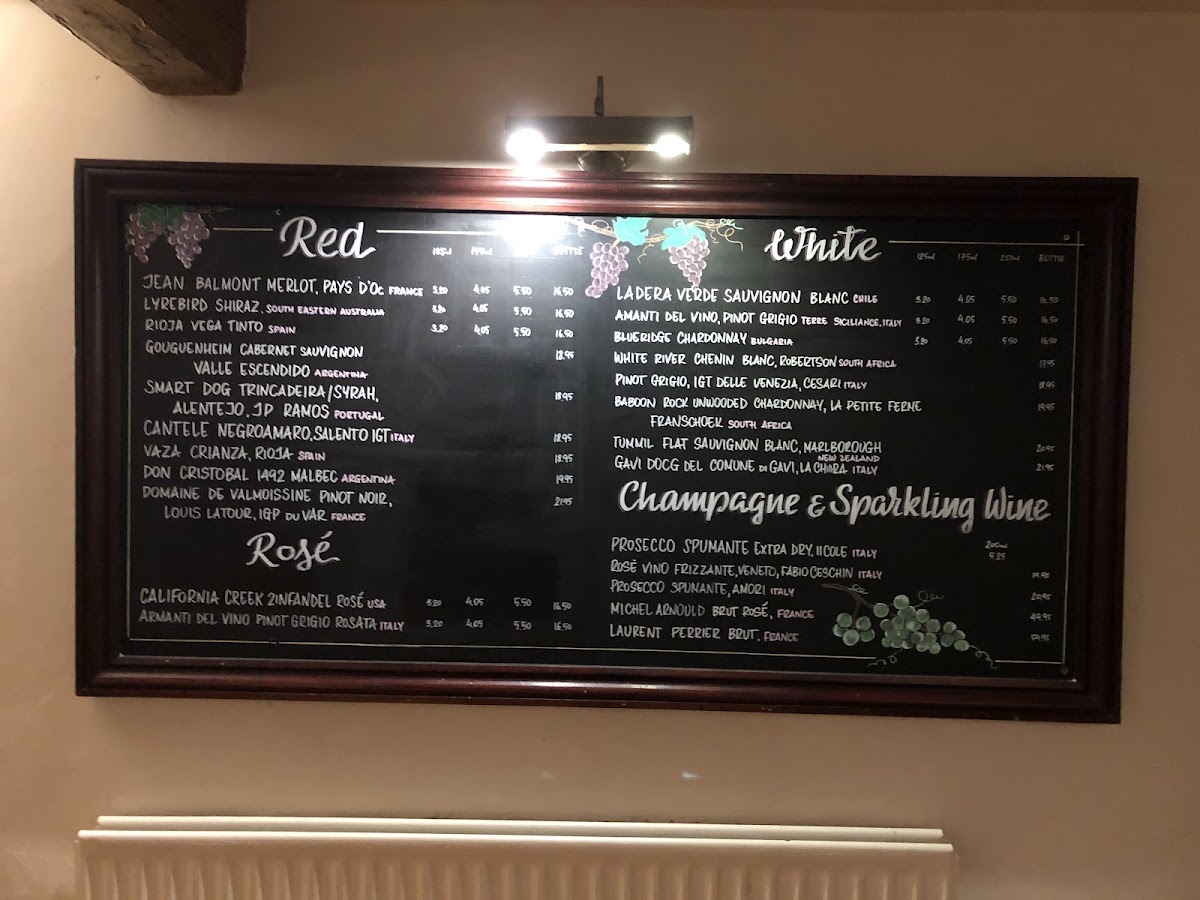 Red 125ml 175ml BOTTLE
JEAN BALMONT MERLOT, PAYS D'OC FRANCE 3.20 4.05 5.50 16.50
LYREBIRD SHIRAZ, SOUTH EASTERN AUSTRALIA 3.20 4.05 5.50 16.50
RIOJA VEGA TINTO SPAIN 3.20 4.05 5.50 16.50
GOUGUENHEIM CABERNET SAUVIGNON 18.95
VALLE ESCENDIDO ARGENTINA
SMART DOG TRINCADEIRA/SYRAH, 18.95
ALENTEJO, JP RAMOS PORTUGAL
CANTELE NEGROAMARO, SALENTO IGT ITALY 18.95
VAZA CRIANZA, RIOJA SPAIN 18.95
DON CRISTOBAL 1492 MALBEC ARGENTINA 19.95
DOMAINE DE VALMOISSINE PINOT NOIR, 21.95
LOUIS LATOUR, IGP DU VAR FRANCE
Rosé
CALIFORNIA CREEK ZINFANDEL ROSÉ USA 3.20 4.05 5.50 16.50
ARMANTI DEL VINO PINOT GRIGIO ROSATA ITALY 3.20 4.05 5.50 16.50
White 125ml 175ml 250ml BOTTLE
LADERA VERDE SAUVIGNON BLANC CHILE 3.20 4.05 5.50 16.50
AMANTI DEL VINO, PINOT GRIGIO TERRE SICILIANCE, ITALY 3.20 4.05 5.50 16.50
BLUERIDGE CHARDONNAY BULGARIA 3.20 4.05 5.50 16.50
WHITE RIVER CHENIN BLANC, ROBERTSON SOUTH AFRICA 17.95
PINOT GRIGIO, IGT DELLE VENEZIA, CESARI ITALY 18.95
BABOON ROCK UNWOODED CHARDONNAY, LA PETITE FERME 19.95
FRANSCHOEK SOUTH AFRICA
TUMMIL FLAT SAUVIGNON BLANC, MARLBOROUGH 20.95
NEW ZEALAND
GAVI DOCG DEL COMUNE DI GAVI, LA CHIARA ITALY 21.95
Champagne & Sparkling Wine
200ml
PROSECCO SPUMANTE EXTRA DRY, IICOLE ITALY 5.25
ROSÉ VINO FRIZZANTE, VENETO, FABIO CESCHIN ITALY 19.95
PROSECCO SPUNANTE, AMORI ITALY 20.95
MICHEL ARNOULD BRUT ROSÉ, FRANCE 49.95
LAURENT PERRIER BRUT, FRANCE 59.95